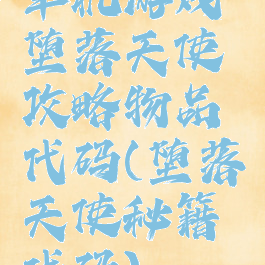 单机游戏
堕落天使
攻略物品
代码(堕落
天使秘籍
代码)